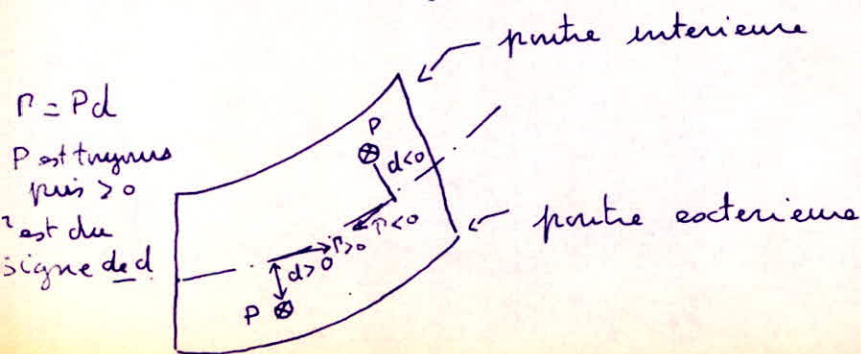 poutre interieure
Γ = Pd
P est toujours
pris > 0
est du
signe de d
P
d<0
Γ<0
Γ>0
d>0
P
poutre exterieure